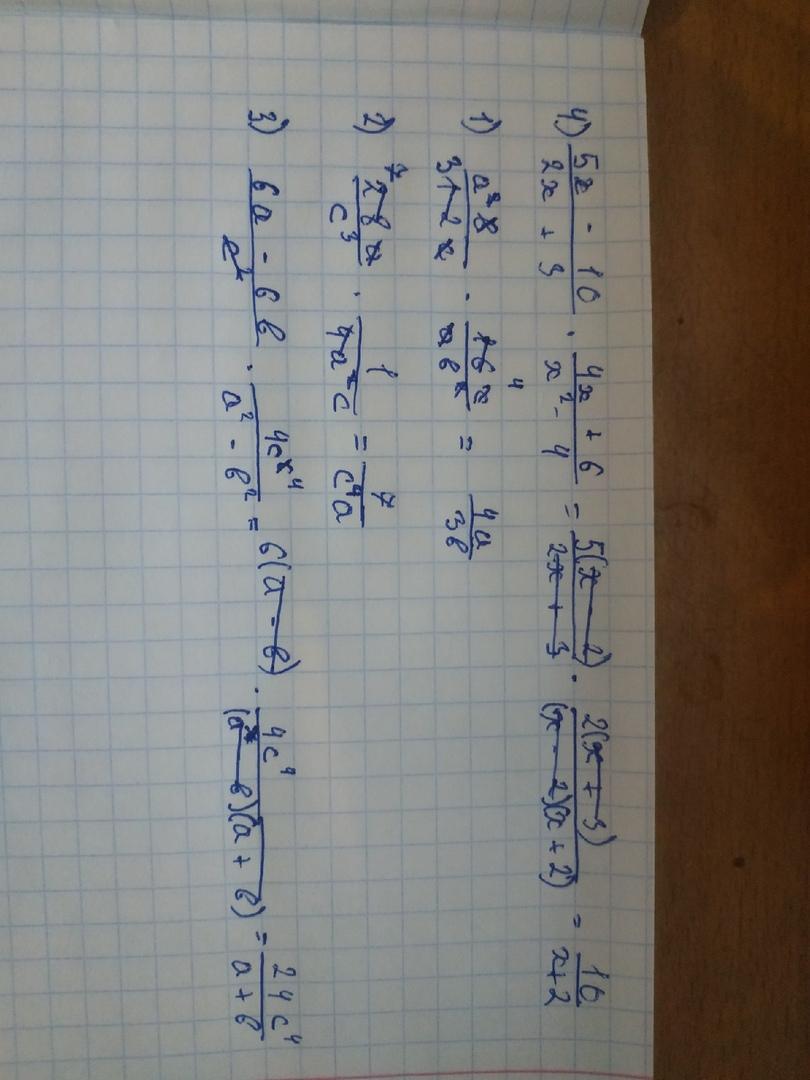 4) (5x - 10)/(2x + 3) · (4x + 6)/(x² - 4) = 5(x - 2)/(2x + 3) · 2(x + 3)/((x - 2)(x + 2)) = 10/(x+2)
1) a²8/12x · 16x/ab² = 4a/3b
2) 28a/c³ · 1/4a²c = 7/c⁴a
3) (6a - 6b)/c² · 4c⁴/(a² - b²) = 6(a - b) · 4c⁴/((a - b)(a + b)) = 24c⁴/(a + b)